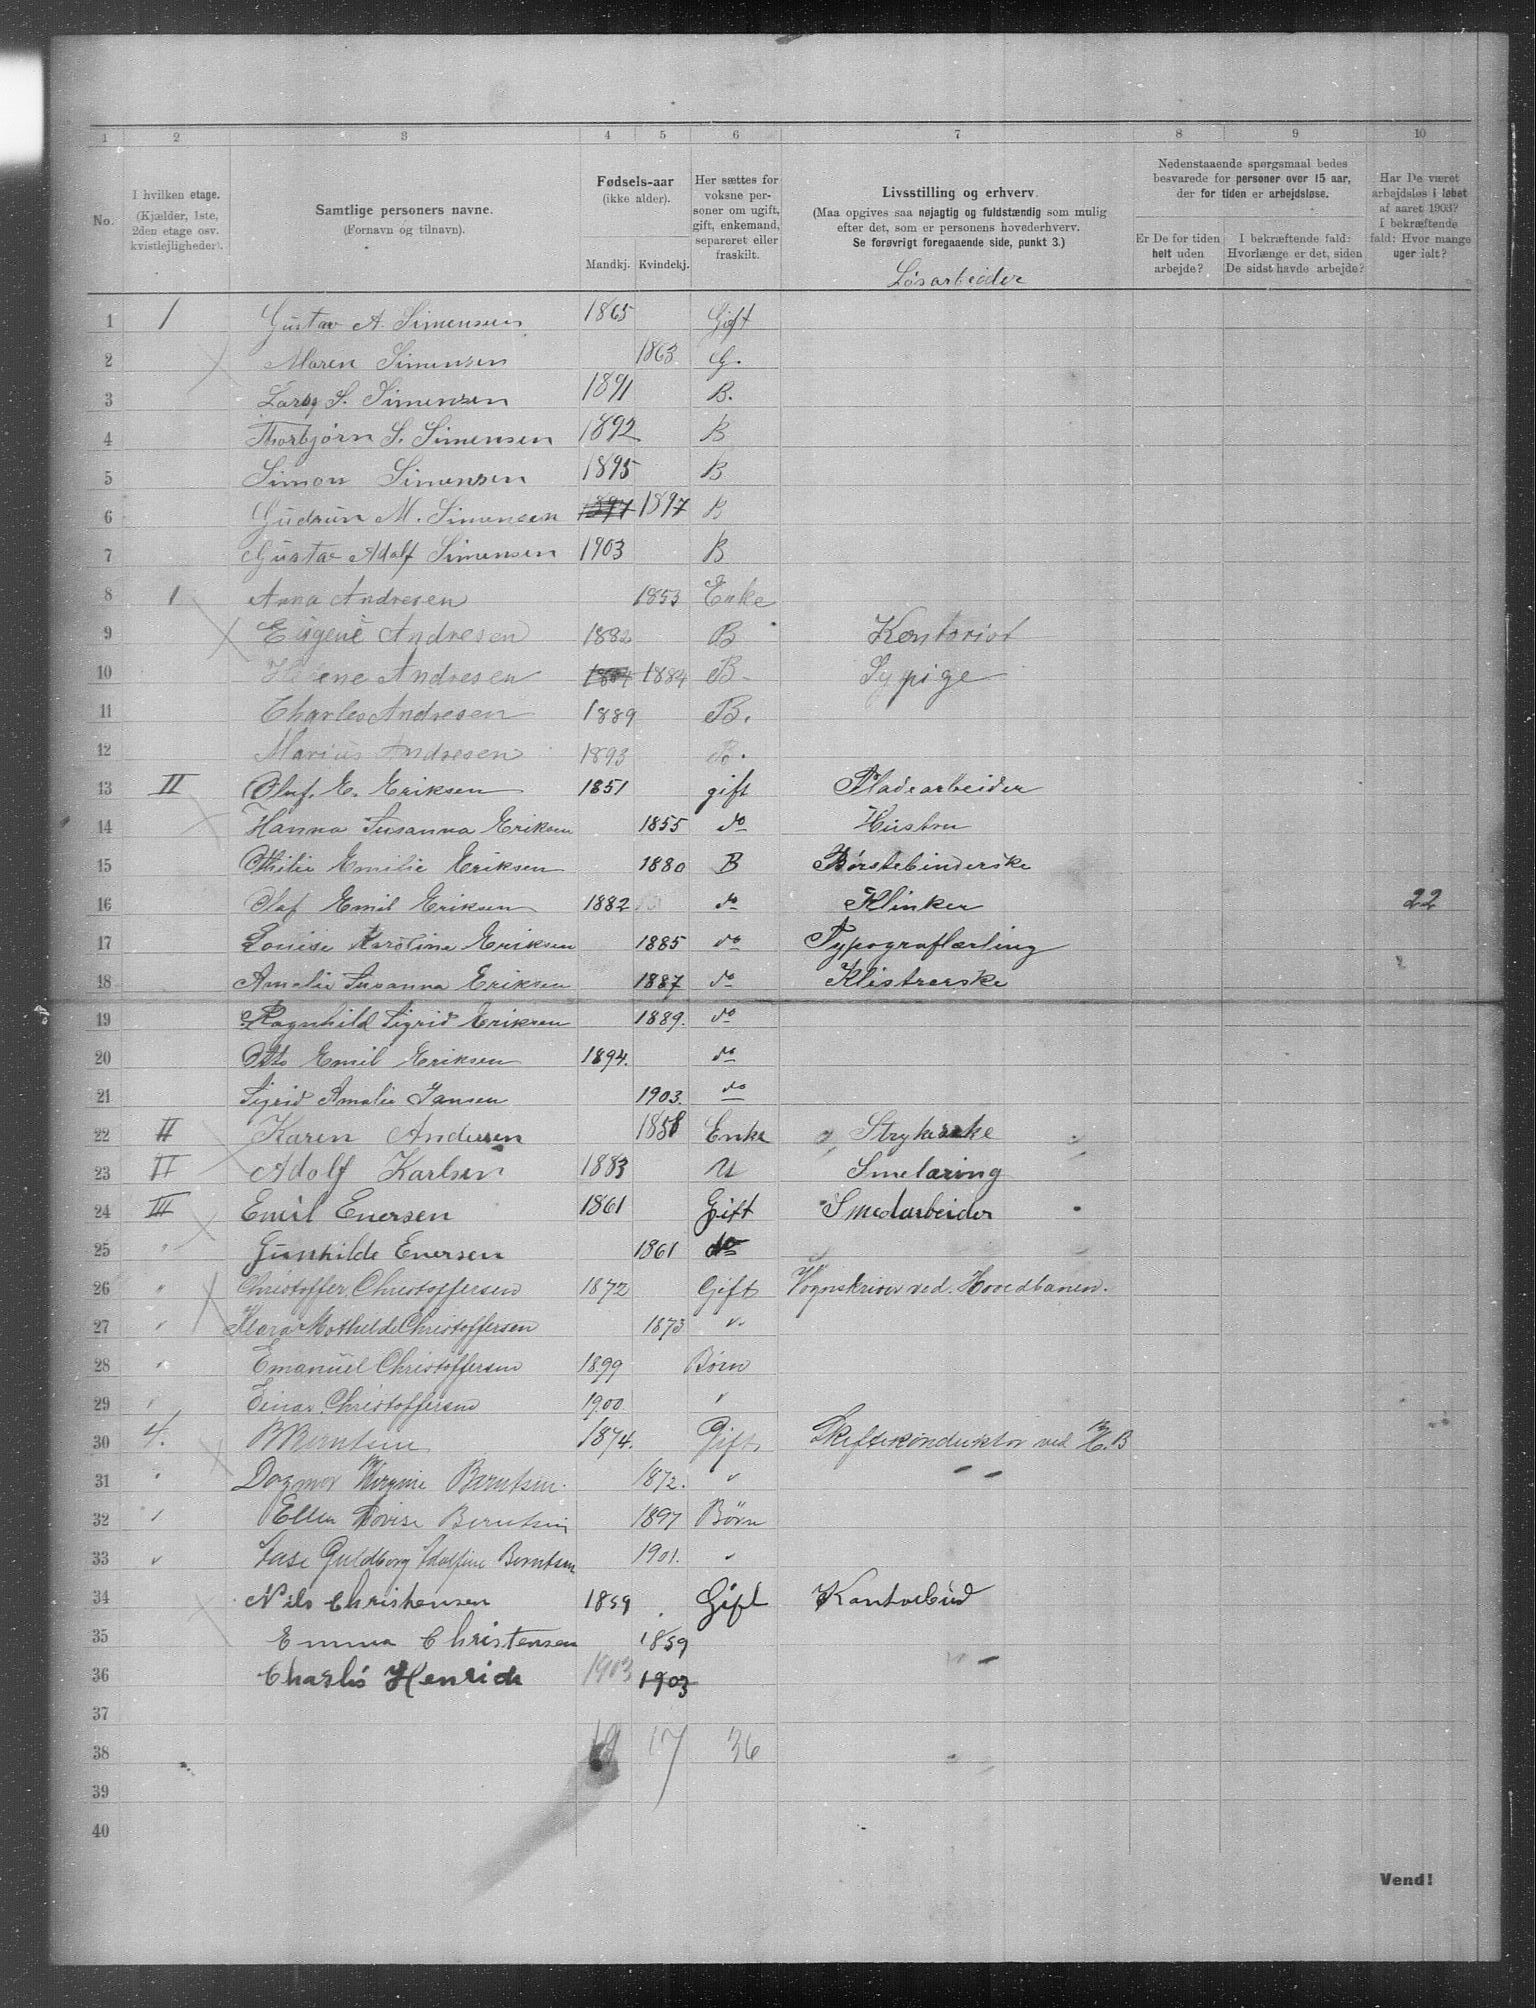 1 2 3 4 5 6 7 8 9 10
No. I hvilken etage. (Kjælder, 1ste, 2den etage osv. kvistlejligheder). Samtlige personers navne. (Fornavn og tilnavn). Fødsels-aar (ikke alder). Mandkj. Kvindekj. Her sættes for voksne personer om ugift, gift, enkemand, separeret eller fraskilt. Livsstilling og erhverv. (Maa opgives saa nøjagtig og fuldstændig som mulig efter det, som er personens hovederhverv. Se forøvrigt foregaaende side, punkt 3.) Nedenstaaende spørgsmaal bedes besvarede for personer over 15 aar, der for tiden er arbejdsløse. Er De for tiden helt uden arbejde? I bekræftende fald: Hvorlænge er det, siden De sidst havde arbejde? Har De været arbejdsløs i løbet af aaret 1903? I bekræftende fald: Hvor mange uger ialt?
Løsarbeider
1 1 Gustav A. Simensen 1865 Gift
2 Maren Simensen 1863 G.
3 Lars S. Simensen 1891 B.
4 Thorbjørn S. Simensen 1892 B
5 Simon Simensen 1895 B
6 Gudrun M. Simensen 1897 1897 B
7 Gustav Adolf Simensen 1903 B
8 1 Anna Andresen 1853 Enke
9 Eugene Andresen 1882 B Kontorist
10 Helene Andresen 1884 1884 B Sypige
11 Charles Andresen 1889 B.
12 Marius Andresen 1893 B.
13 II Oluf. E. Eriksen 1851 gift Pladearbeider
14 Hanna Susanna Eriksen 1855 do Hustru
15 Othilie Emilie Eriksen 1880 B Børstebinderske
16 Olaf Emil Eriksen 1882 do Klinker 22
17 Louise Karolina Eriksen 1885 do Typograflærling
18 Amalie Susanna Eriksen 1887 do Klistrerske
19 Ragnhild Sigrid Eriksen 1889. do
20 Otto Emil Eriksen 1894. do
21 Sigrid Amalie Jansen 1903. do
22 II Karen Andersen 1858 Enke Strykerske
23 II Adolf Karlsen 1883 U Smelæring
24 III Emil Enersen 1861 Gift Smedarbeider
25 " Gunhilde Enersen 1861 do
26 " Christoffer Christoffersen 1872 Gift Vognskriver ved. Hovedbanen.
27 " Klara Mathilde Christoffersen 1873 "
28 " Emanuel Christoffersen 1899 Børn
29 " Einar Christoffersen 1900 "
30 4. B Berntsen 1874. Gift Skiftekonduktør ved H.B
31 " Dagmar Berntsen. 1872. "
32 " Ellen Lovise Berntsen 1897 Børn
33 " Aase Guldborg Adolfine Berntsen 1901. "
34 Nils Christensen 1859 Gift Kontorbud
35 Emma Christensen 1859
36 Charles Henrick 1903 1903
37
38 19 17 36
39
40
Vend!